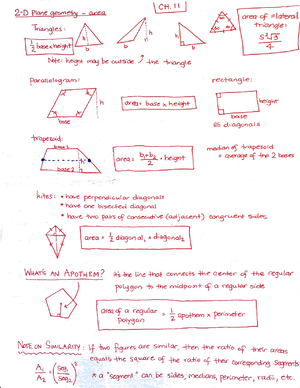 2-D Plane geometry - area
CH. 11
Triangles:
1/2 base x height
h
b
h
b
h
b
area of equilateral
triangle:
s²√3
4
Note: height may be outside the triangle
Parallelogram:
h
b
area = base x height
rectangle:
height
base
diagonals
trapezoid:
base 1
base 2
area = b₁+b₂ / 2 · height
median of trapezoid
= average of the 2 bases
kites:
• have perpendicular diagonals
• have one bisected diagonal
• have two pairs of consecutive (adjacent) congruent sides
area = 1/2 diagonal₁ x diagonal₂
WHAT'S AN APOTHEM?
It's the line that connects the center of the regular
polygon to the midpoint of a regular side
area of a regular
polygon = 1/2 apothem x perimeter
NOTE ON SIMILARITY:
If two figures are similar, then the ratio of their areas
equals the square of the ratio of their corresponding segments
A₁/A₂ = (seg₁/seg₂)²
* a "segment" can be sides, medians, perimeter, radii, etc.